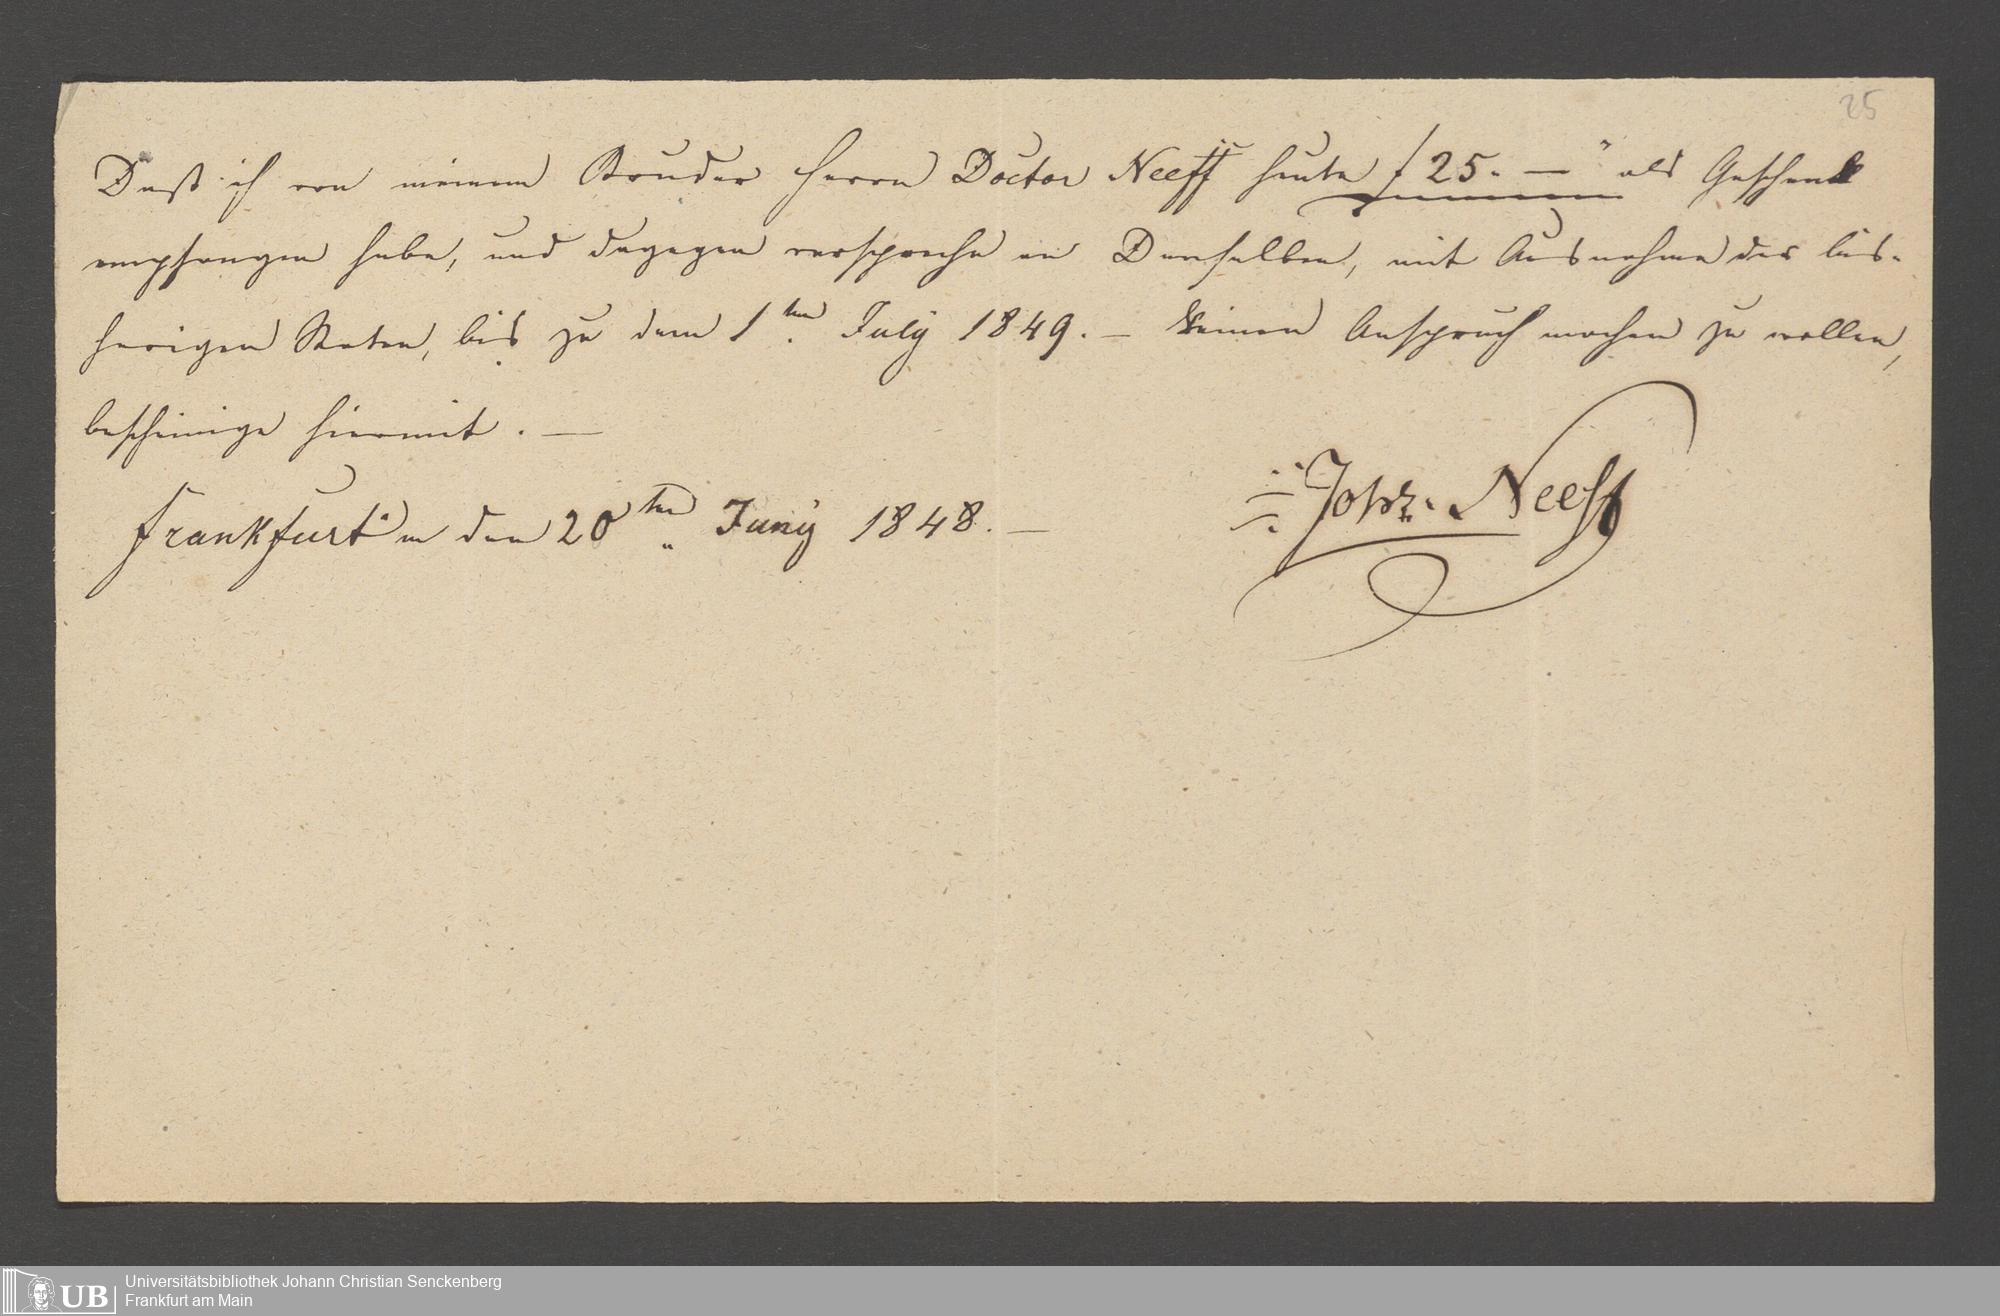 25
Daß ich von meinem Bruder Herrn Doctor Neeff heute f 25. — als Geschenk
empfangen habe, und dagegen verspreche an Denselben, mit Ausnahme der bis-
herigen Raten, bis zu dem 1ten July 1849. — keinen Anspruch machen zu wollen,
bescheinige hiermit. —
Frankfurt den 20ten Juny 1848. —
Neeff
UB
Universitätsbibliothek Johann Christian Senckenberg
Frankfurt am Main